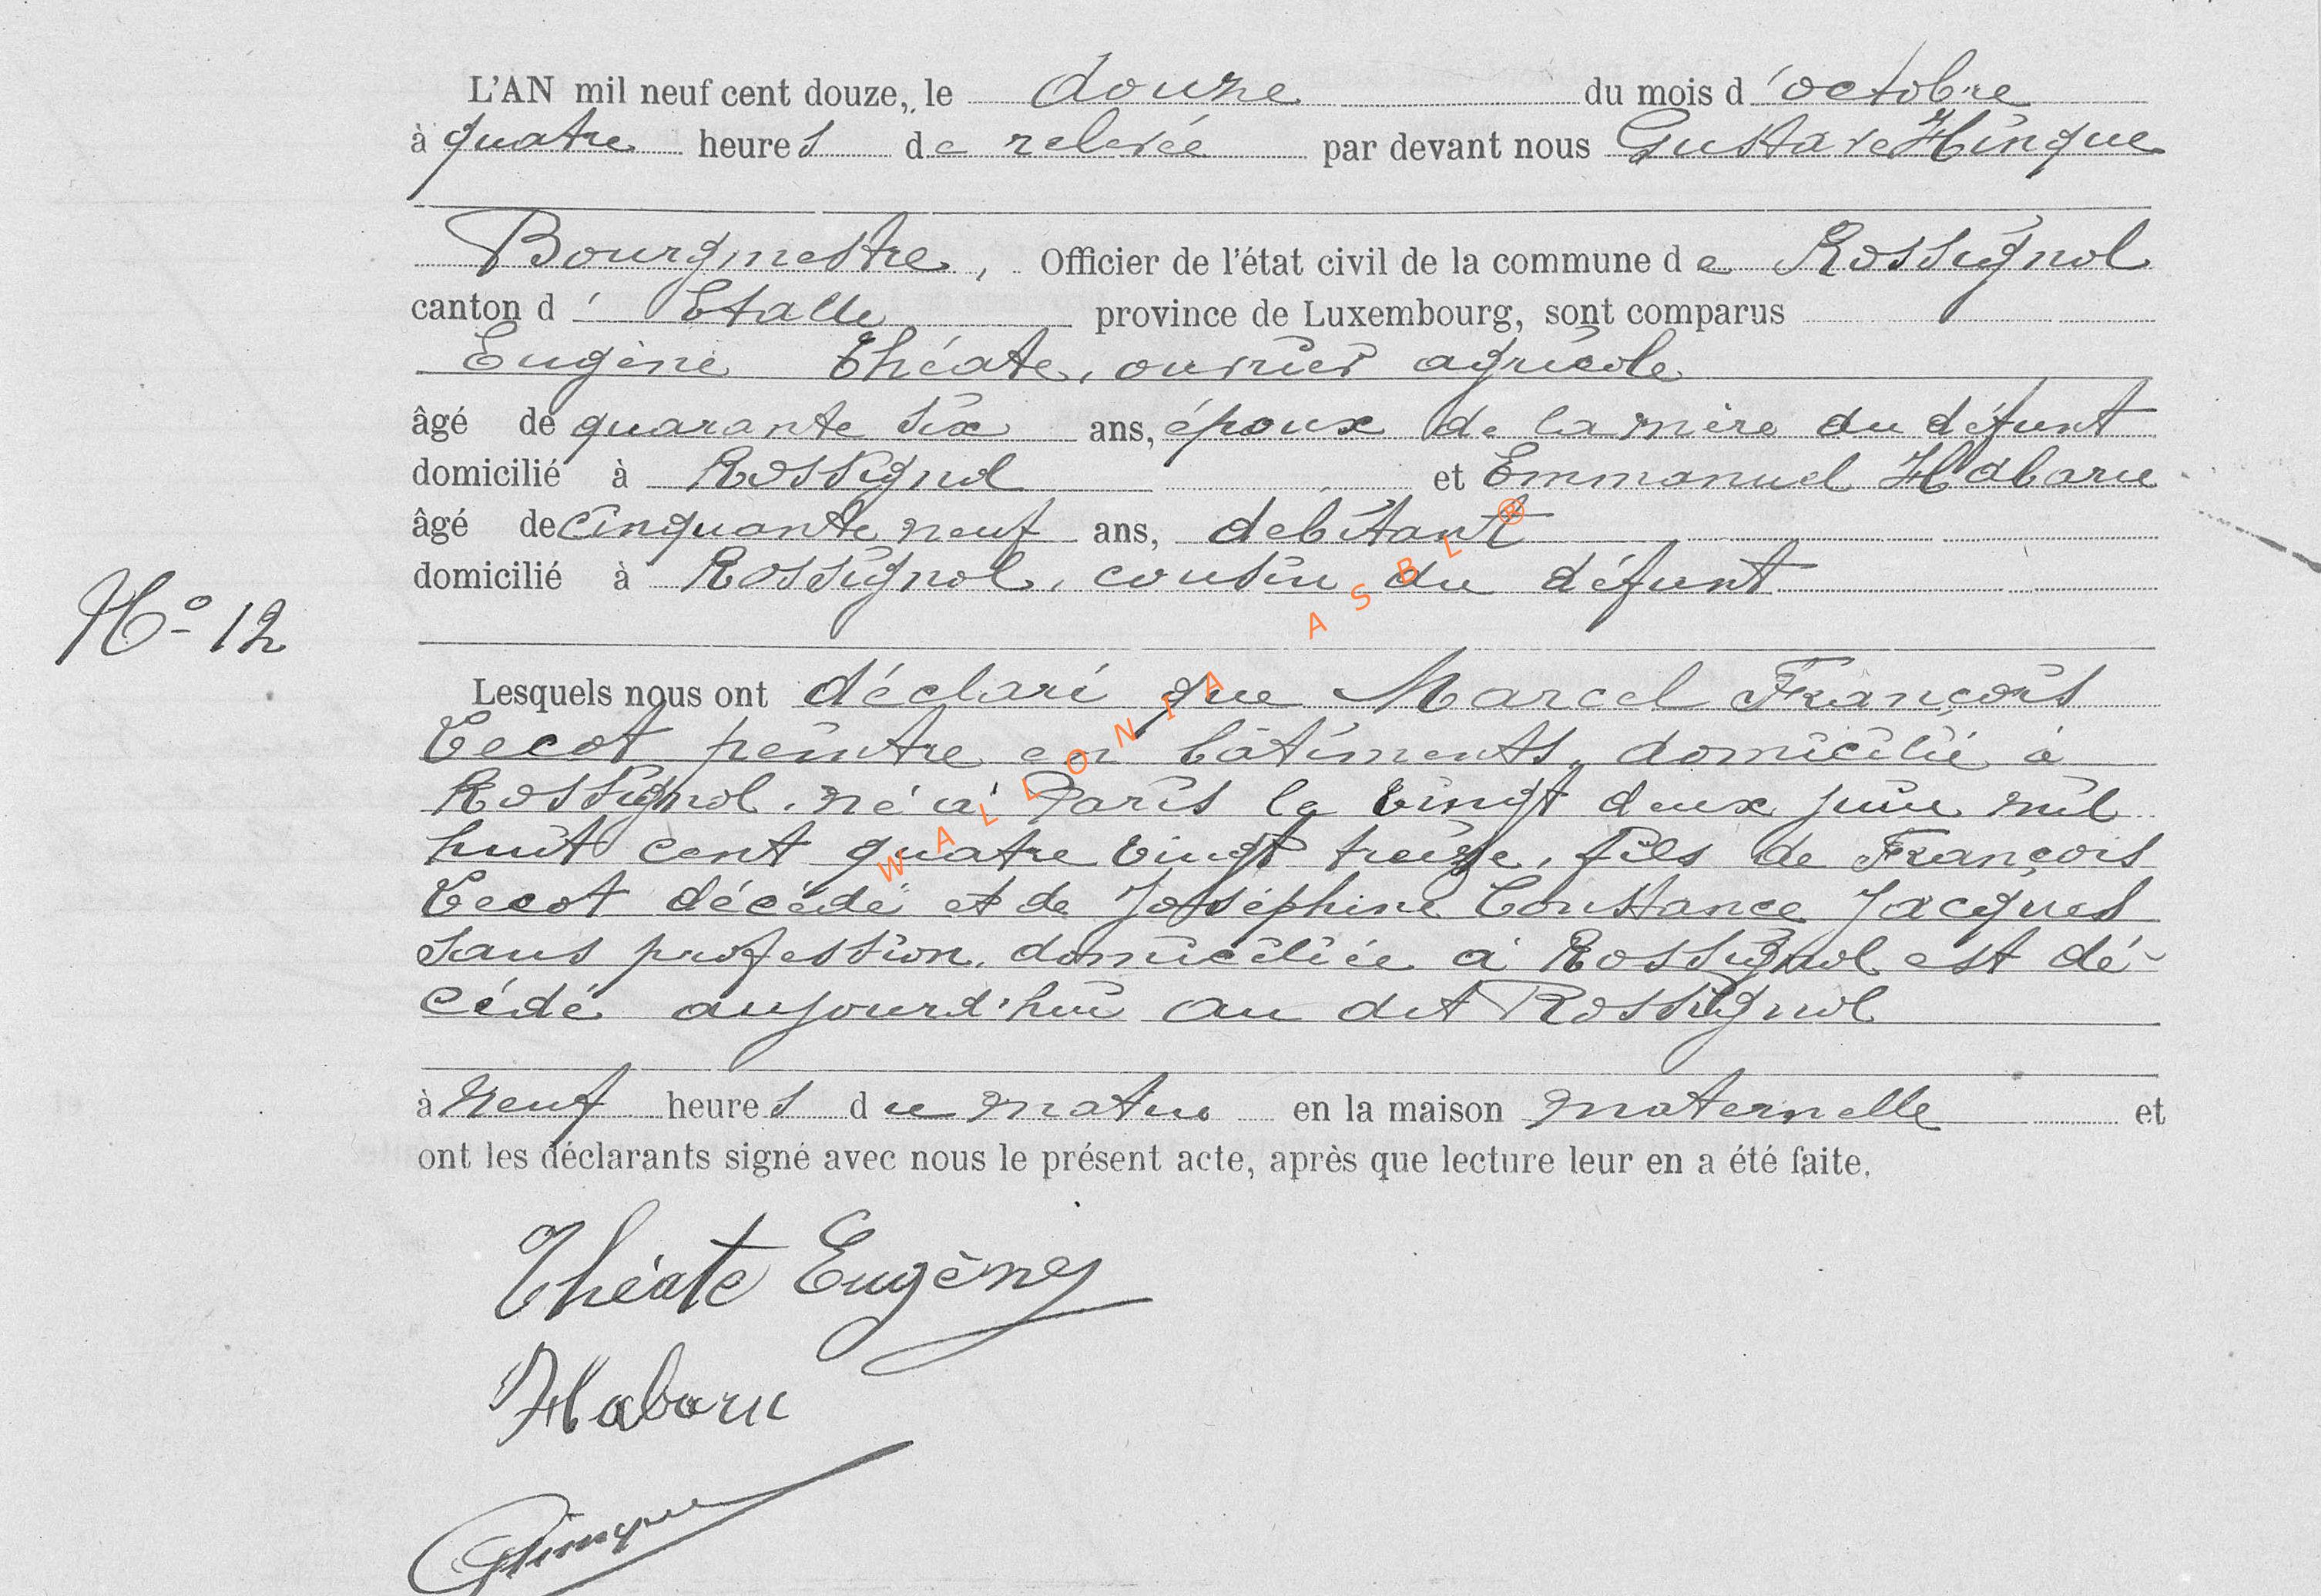 L'AN mil neuf cent douze, le douze du mois d'octobre
à quatre heures de relevée par devant nous Gustave Hinque
Bourgmestre, Officier de l'état civil de la commune de Rossignol
canton d'Etalle province de Luxembourg, sont comparus
Eugène Théate, ouvrier agricole
âgé de quarante six ans, époux de la mère du défunt
domicilié à Rossignol et Emmanuel Habaru
âgé de cinquante neuf ans, debitant
domicilié à Rossignol, cousin du défunt
No 12
Lesquels nous ont déclaré que Marcel François
Cecot peintre en bâtiments, domicilié à
Rossignol, né à Paris le vingt deux juin mil
huit cent quatre vingt treize, fils de François
Cecot décédé et de Joséphine Constance Jacques
sans profession, domiciliée à Rossignol est dé-
cédé aujourd'hui au dit Rossignol
à neuf heures du matin en la maison maternelle et
ont les déclarants signé avec nous le présent acte, après que lecture leur en a été faite.
Théate Eugène
Habaru
GHinque
WALLONIA ASBL ®